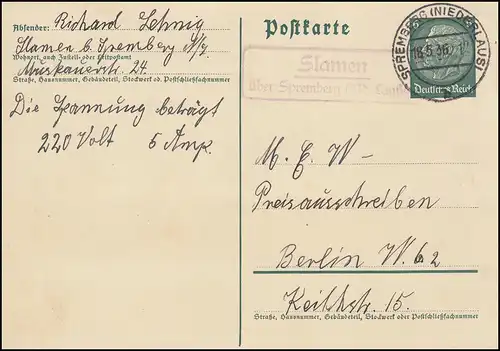 Absender: Richard Lehnig
Slamen b. Spremberg N/L
Wohnort, auch Zustell- oder Leitpostamt
Muskauerstr. 24.
Straße, Hausnummer, Gebäudeteil, Stockwerk oder Postschließfachnummer
Die Spannung beträgt
220 Volt 5 Amp.
Postkarte
SPREMBERG (NIEDERLAUSITZ)
18.5.36
Deutsches Reich
Slamen
über Spremberg
M. E. W-
Preisausschreiben
Berlin W. 62
Keithstr. 15.
Straße, Hausnummer, Gebäudeteil, Stockwerk oder Postschließfachnummer